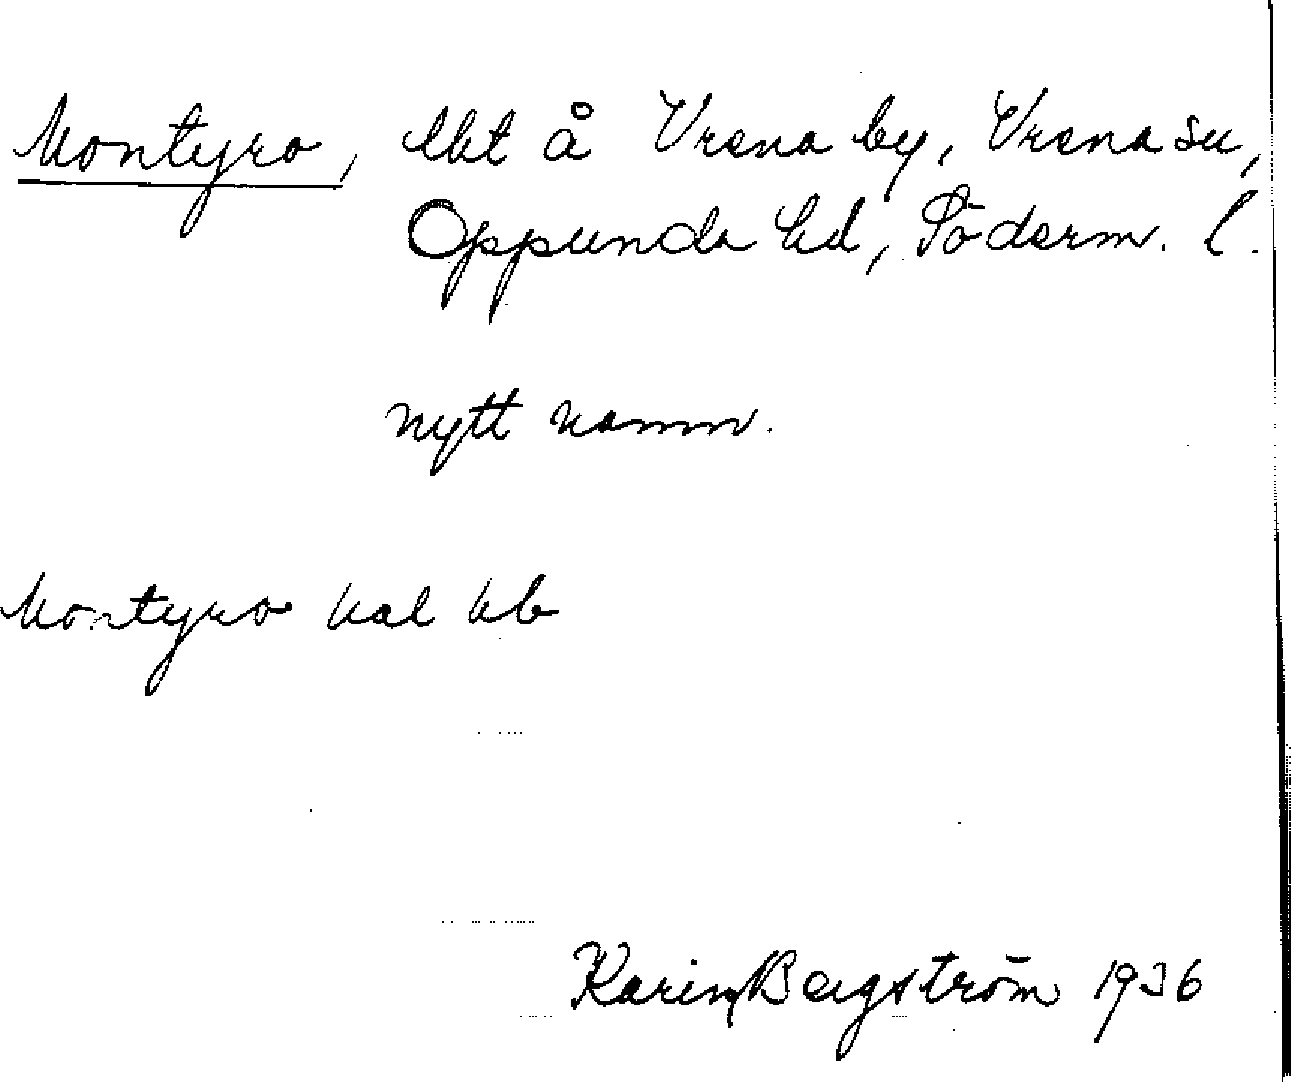 Montyro, lht å Vrena by, Vrena sn,
Oppunda hd, Söderm. l.
nytt namn.
Montyro kal hb
Karin Bergström 1936